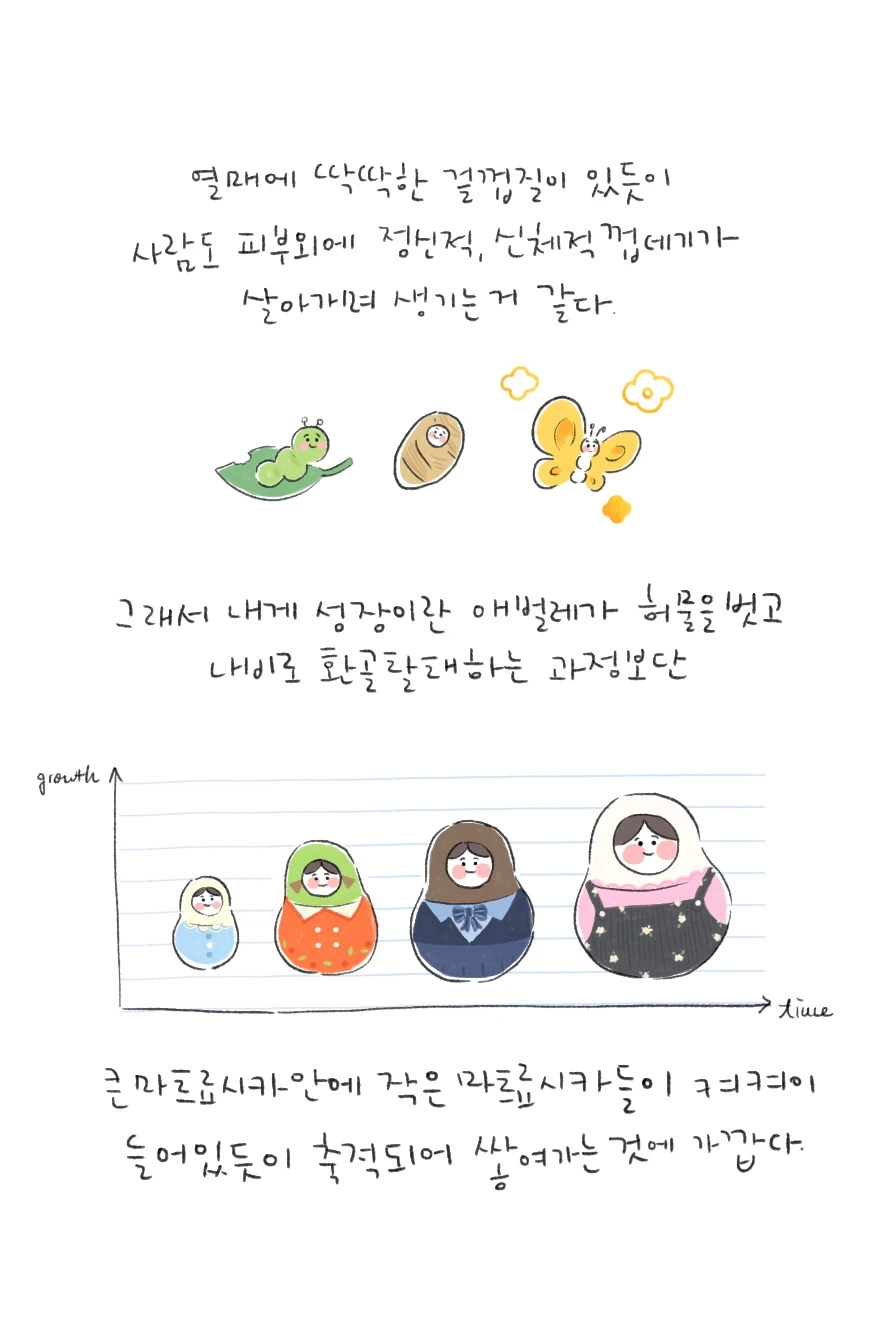 열매에 딱딱한 겉껍질이 있듯이
사람도 피부외에 정신적, 신체적 껍데기가
살아가며 생기는 거 같다.
그래서 내게 성장이란 애벌레가 허물을 벗고
나비로 환골탈태하는 과정보단
growth
time
큰 마트료시카 안에 작은 마트료시카들이 켜켜이
들어있듯이 축적되어 쌓여가는 것에 가깝다.